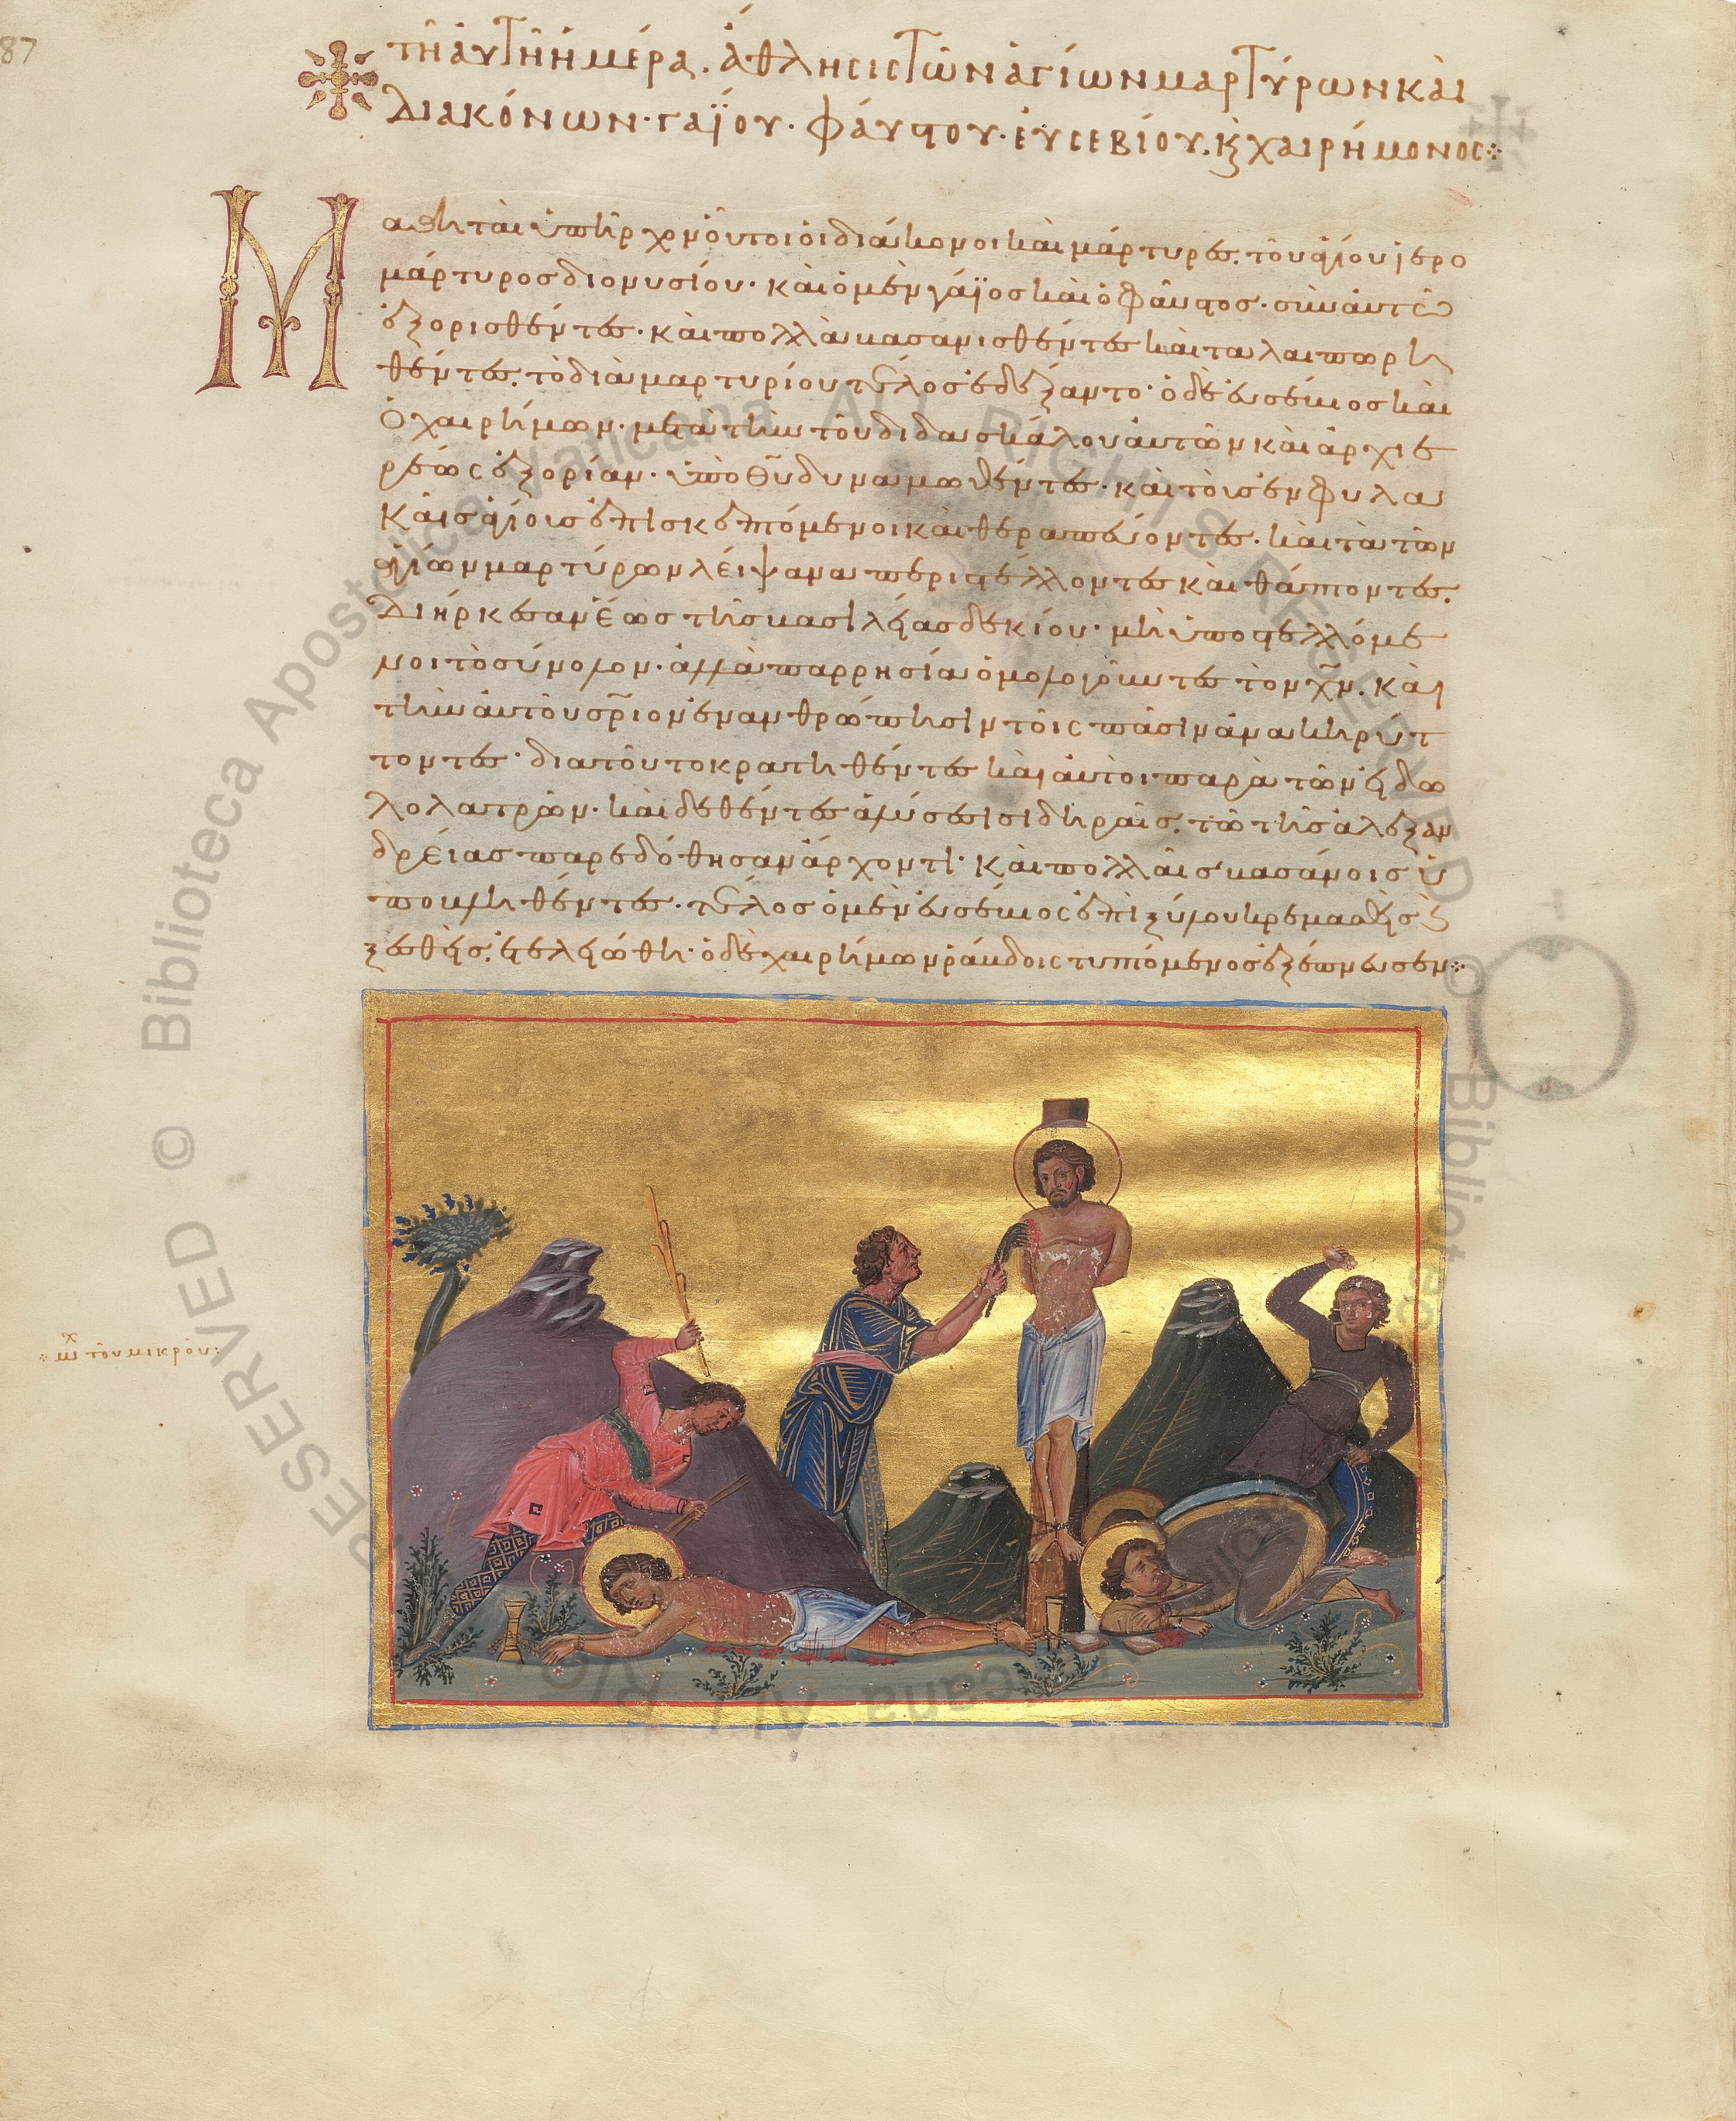 87
τῆ αὐτῆ ἡμέρα. ἄθλησις τῶν ἁγίων μαρτύρων καὶ
διακόνων· γαΐου· φαύστου· ἐυσεβίου. κ χαιρήμονος
Μ
αθηταὶ ὑπῆρχον οὗτοι οἱ διάκονοι καὶ μάρτυρες. τοῦ ἁγίου ἱερο
μάρτυρος διονυσίου· καὶ ὁ μὲν γάϊος καὶ ὁ φαῦστος· σὺν αὐτῶ
ἐξορισθέντες· καὶ πολλὰ βασανισθέντες καὶ ταλαιπωρη
θέντες. τὸ διὰ μαρτυρίου τέλος ἐδέξαντο· ὁ δὲ ἐυσέβιος καὶ
ὁ χαιρήμων· μετὰ τὴν τοῦ διδασκάλου αὐτῶν καὶ ἀρχιε
ρέως ἐξορίαν· ὑπὸ θῦ δυναμωθέντες· καὶ τοῖς ἐν φυλα
καῖς ἁγίοις ἐπισκεπτόμενοι καὶ θεραπεύοντες· καὶ τὰ τῶν
ἁγίων μαρτύρων λείψανα περιστέλλοντες καὶ θάπτοντες.
διήρκεσαν ἕως τῆς βασιλείας δεκίου· μὴ ὑποστελλόμε
νοι τὸ σύνολον· ἀλλὰ παρρησία ὁμολογοῦντες τὸν χν. καὶ
τὴν αὐτοῦ σριον ἐνανθρώπησιν τοῖς πᾶσιν ἀνακηρύτ
τοντες· διατοῦτο κρατηθέντες καὶ αὐτοὶ παρὰ τῶν εἰδω
λολατρῶν· καὶ δεθέντες ἁλύσεσι σιδηραῖς. τῶ τῆς ἀλεξαν
δρείας παρεδόθησαν ἄρχοντι· καὶ πολλαῖς βασάνοις ὑ
ποβληθέντες· τέλος ὁ μὲν ἐυσέβιος ἐπὶ ξύλου κρεμασθεὶς ἐ
ξεσθεὶς. ἐτελειώθη· ὁ δὲ χαιρήμων ῥάβδοις τυπτόμενος ἐξέπνευσεν
τοῦ μικροῦ
© Biblioteca Apostolica Vaticana ALL RIGHTS RESERVED © Bibliot